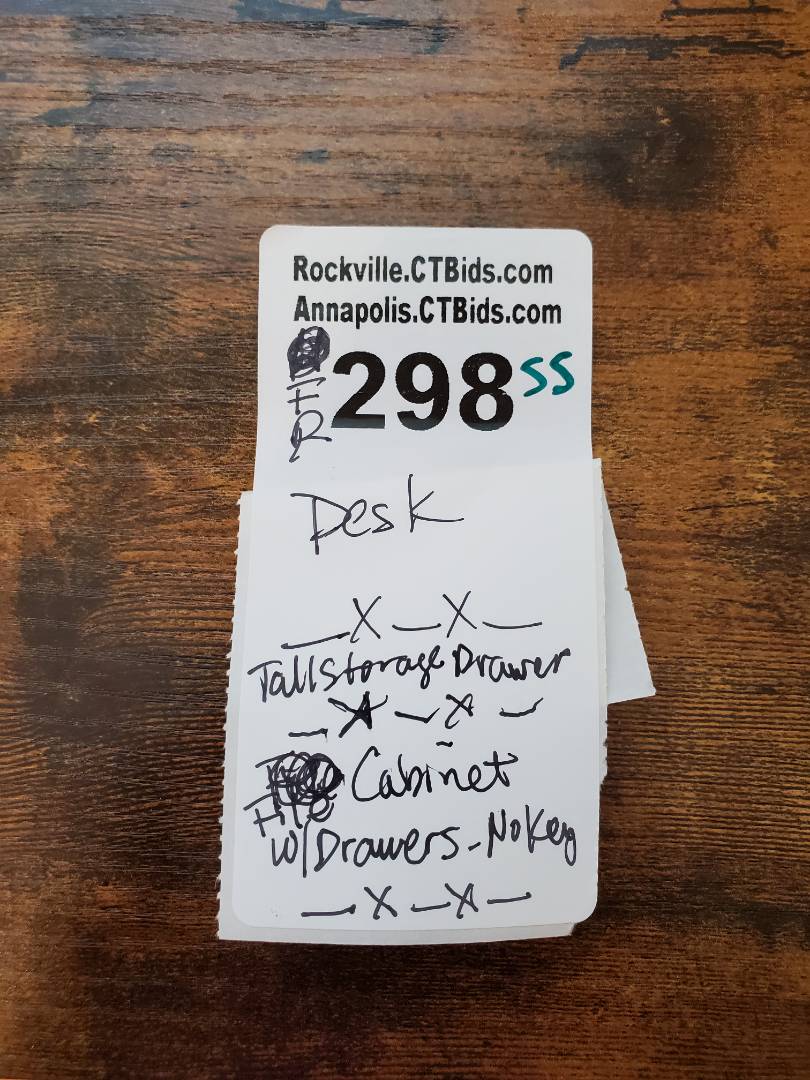 Rockville.CTBids.com
Annapolis.CTBids.com
FR 298 SS
Desk
_X_X_
Tall Storage Drawer
_X_X_
File Cabinet
w/Drawers - No Key
_X_X_